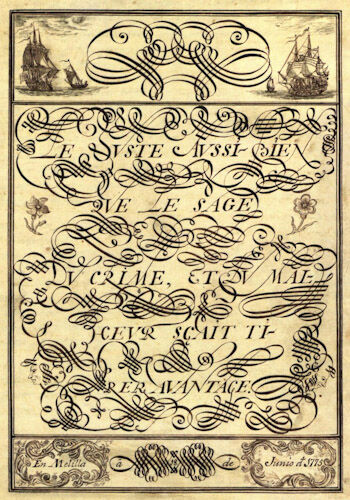 LE JVSTE AVSSI-BIEN
QVE LE SAGE
DV CRIME, ET DV MAL-
HEVR SCAIT TI-
RER AVANTAGE.
En Melilla a de Junio d. 1775